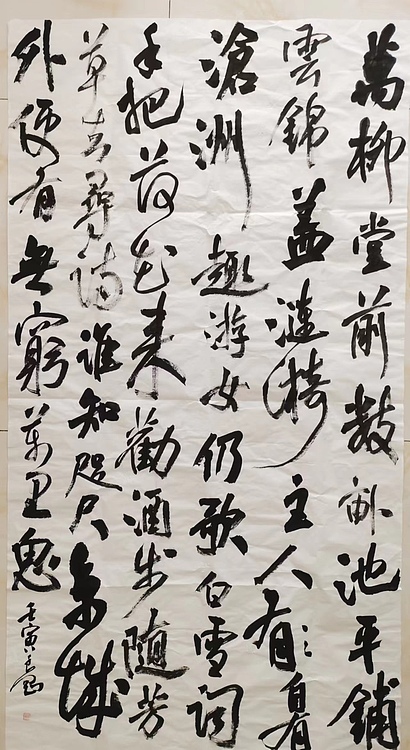 萬柳堂前數畝池平鋪
雲錦蓋漣漪主人有自有
滄洲趣游女仍歌白雪詞
手把荷花来勸酒步隨芳
草去尋詩誰知咫尺京城
外便有無窮萬里思
壬寅